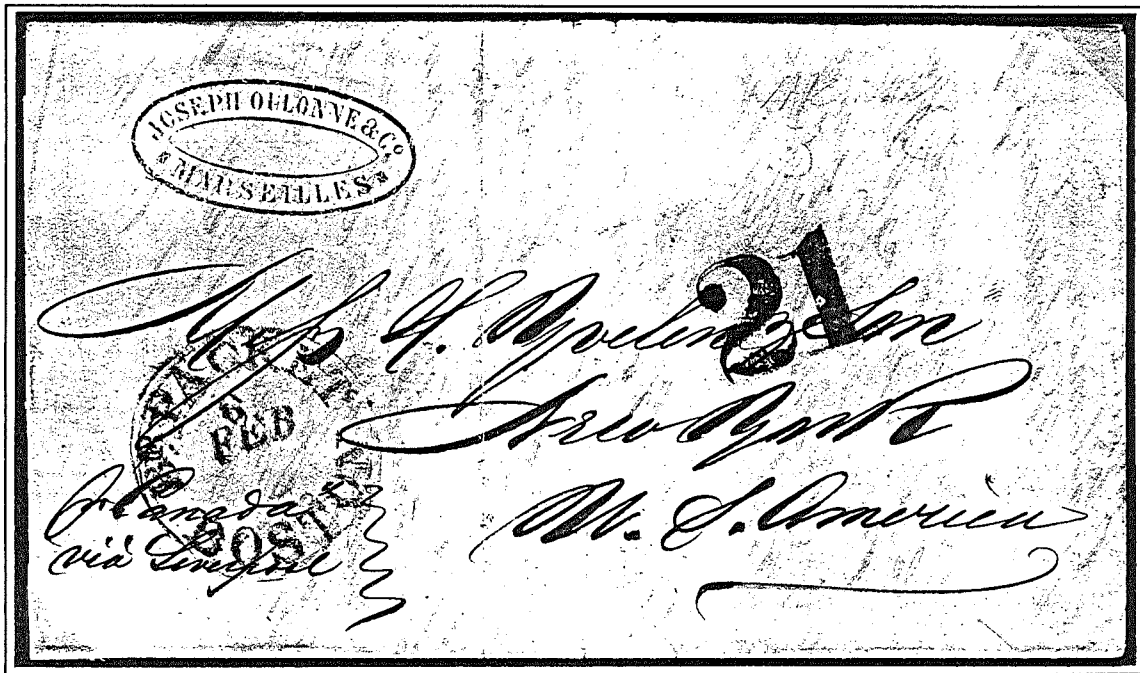 JOSEPH OULONNE & Co
* MARSEILLES *
21
H. Yvelin & Son
New York
U. S. America
BR. PACKET.
8
FEB
BOSTON
p Canada
via Liverpool